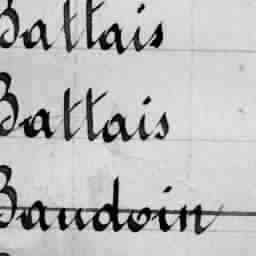 Battais
Battais
Baudoin